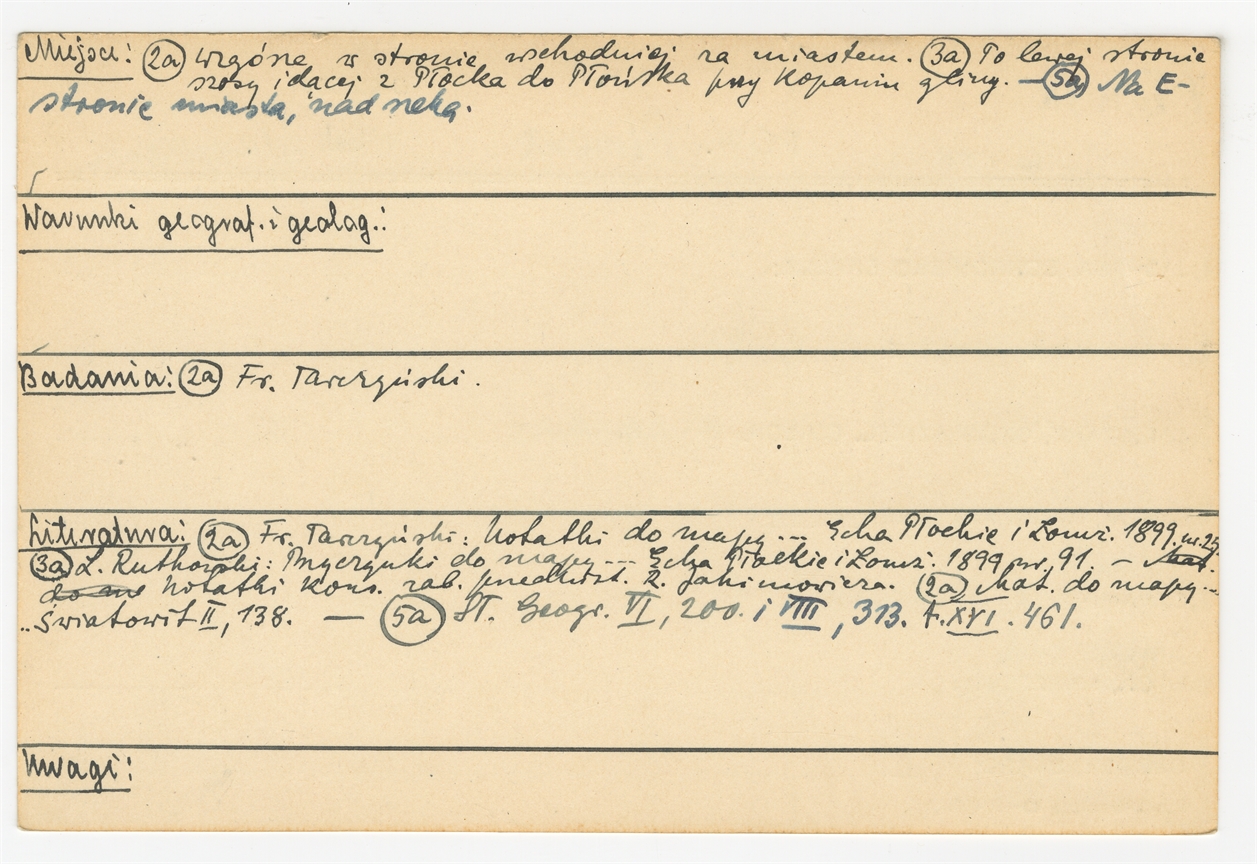 Miejsce: (2a) wzgórze w stronie wschodniej za miastem. (3a) Po lewej stronie
szosy idącej z Płocka do Płońska przy kopaniu gliny. — (5a) Na E-
stronie miasta, nad rzeką.
Warunki geograf. i geolog.:
Badania: (2a) Fr. Tarczyński.
Literatura: (2a) Fr. Tarczyński: Notatki do mapy... Echa Płockie i Łomż. 1899. nr.
(3a) L. Rutkowski: Przyczynki do mapy... Echa Płockie i Łomż. 1899 nr. 91. — Mat.
do Notatki kons. zab. przedhist. Z. Jakimowicza. (2a) Mat. do mapy...
.. Światowit II, 138. — (5a) Sł. Geogr. VI, 200. i VIII, 313. t. XVI. 461.
Uwagi: